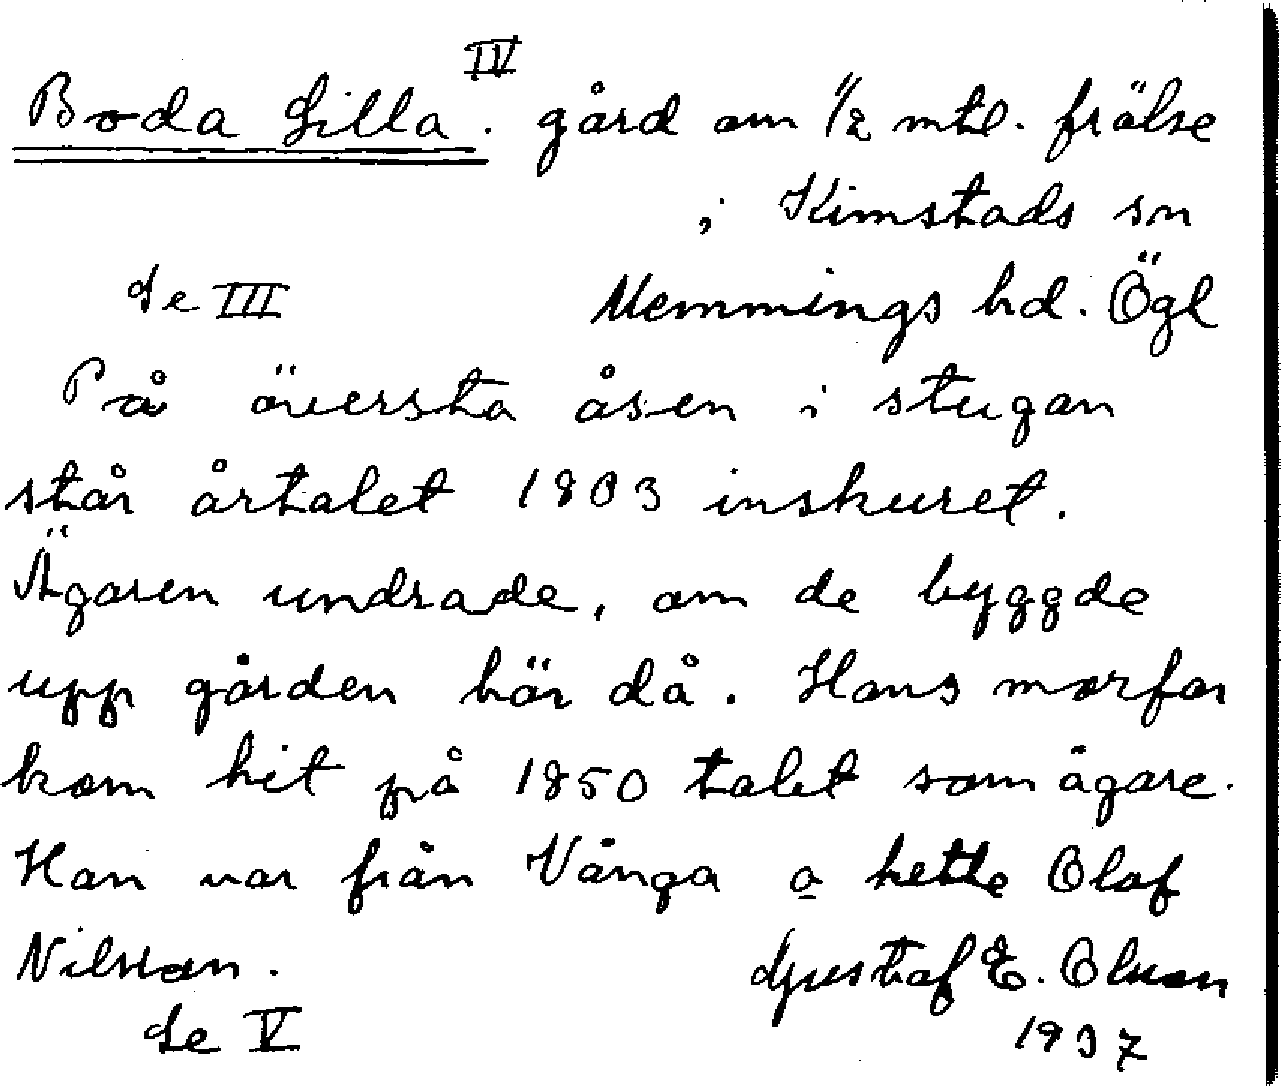 Boda Lilla IV. gård om 1/2 mtl. frälse
i Kimstads sn
Se III Memmings hd. Ögl
På översta åsen i stugan
står årtalet 1803 inskuret.
Ägaren undrade, om de byggde
upp gården här då. Hans morfar
kom hit på 1850 talet som ägare.
Han var från Vånga o hette Olof
Nilsson. Gustaf E. Olsson
Se V 1937